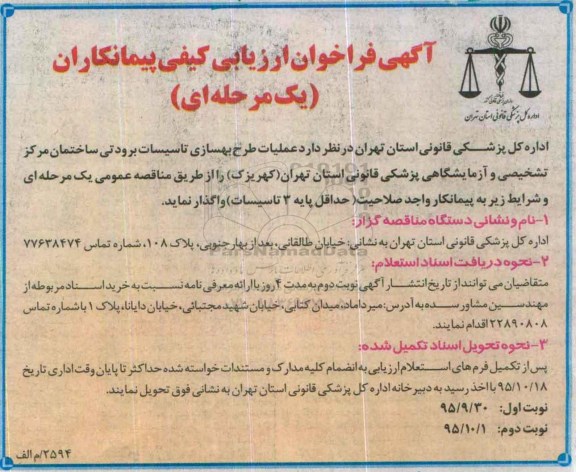 آگهی فراخوان ارزیابی کیفی پیمانکاران
(یک مرحله ای)
اداره کل پزشکی قانونی استان تهران
اداره کل پزشکی قانونی استان تهران در نظر دارد عملیات طرح بهسازی تاسیسات برودتی ساختمان مرکز
تشخیصی و آزمایشگاهی پزشکی قانونی استان تهران (کهریزک) را از طریق مناقصه عمومی یک مرحله ای
و شرایط زیر به پیمانکار واجد صلاحیت (حداقل پایه ۳ تاسیسات) واگذار نماید.
۱-نام و نشانی دستگاه مناقصه گزار:
اداره کل پزشکی قانونی استان تهران به نشانی: خیابان طالقانی، بعد از بهار جنوبی، پلاک ۱۰۸، شماره تماس ۷۷۶۳۸۴۷۴
ParsNamadData
۲-نحوه دریافت اسناد استعلام:
متقاضیان می توانند از تاریخ انتشار آگهی نوبت دوم به مدت ۴ روز با ارائه معرفی نامه نسبت به خرید اسناد مربوطه از
مهندسین مشاور سده به آدرس: میرداماد، میدان کتابی، خیابان شهید مجتبائی، خیابان دایانا، پلاک ۱ با شماره تماس
۲۲۸۹۰۸۰۸ اقدام نمایند.
۳-نحوه تحویل اسناد تکمیل شده:
پس از تکمیل فرم های استعلام ارزیابی به انضمام کلیه مدارک و مستندات خواسته شده حداکثر تا پایان وقت اداری تاریخ
۹۵/۱۰/۱۸ با اخذ رسید به دبیرخانه اداره کل پزشکی قانونی استان تهران به نشانی فوق تحویل نمایند.
نوبت اول: ۹۵/۹/۳۰
نوبت دوم: ۹۵/۱۰/۱
۲۵۹۴/م الف